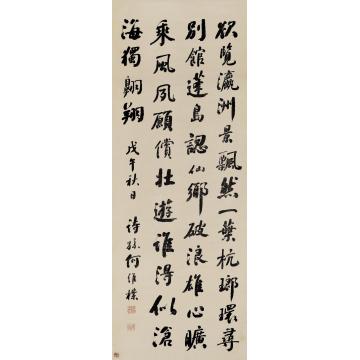 欲覽瀛洲景飄然一葉杭瑯環尋
別館蓬島認仙鄉破浪雄心曠
乘風夙願償壯遊誰得似滄
海獨翱翔
戊午秋日 詩孫何維樸